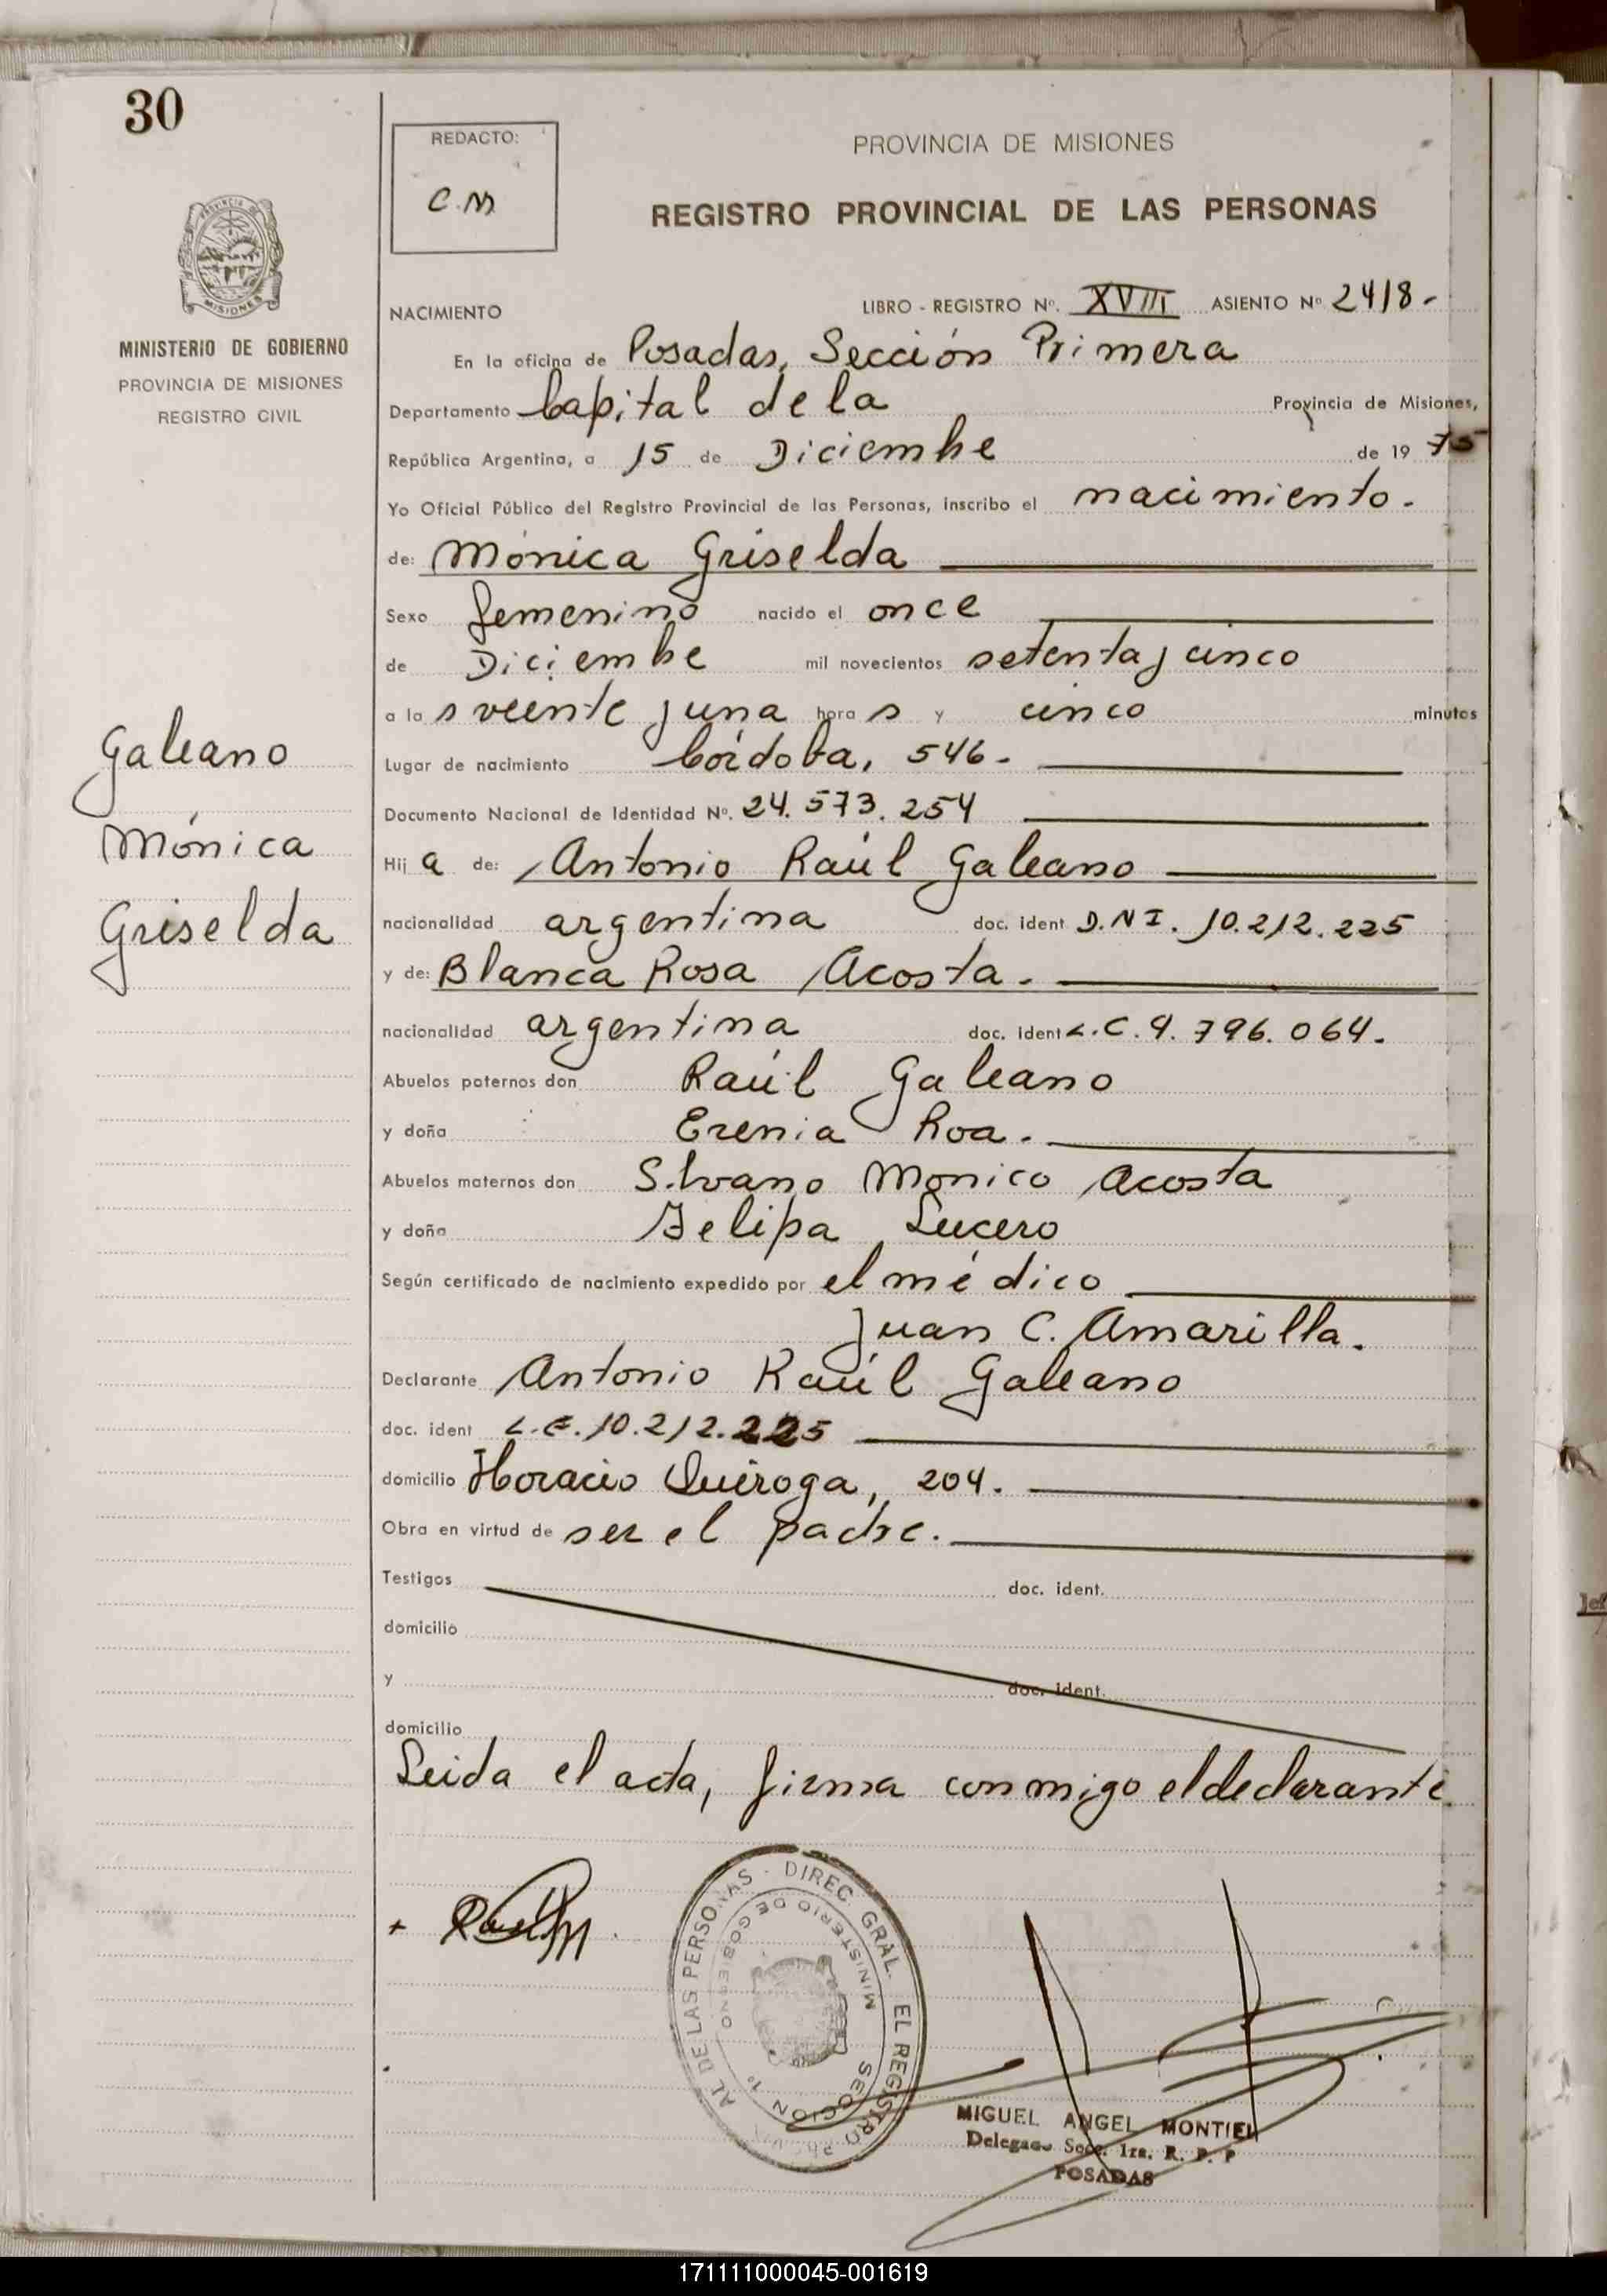 30
REDACTO:
C.M
PROVINCIA DE MISIONES
REGISTRO PROVINCIAL DE LAS PERSONAS
PROVINCIA DE
MISIONES
MINISTERIO DE GOBIERNO
PROVINCIA DE MISIONES
REGISTRO CIVIL
NACIMIENTO
LIBRO - REGISTRO Nº. XVIII ASIENTO Nº 2418-
En la oficina de Posadas, Sección Primera
Departamento Capital de la Provincia de Misiones,
República Argentina, a 15 de Diciembre de 1975
Yo Oficial Público del Registro Provincial de las Personas, inscribo el nacimiento.
de: Mónica Griselda
Sexo femenino nacido el once
de Diciembre mil novecientos setenta y cinco
a las veinte y una horas y cinco minutos
Lugar de nacimiento Córdoba, 546.
Documento Nacional de Identidad Nº. 24.573.254
Hija de: Antonio Raúl Galeano
nacionalidad argentina doc. ident D.N I. 10.212.225
y de: Blanca Rosa Acosta.
nacionalidad argentina doc. ident L.C. 9.796.064.
Abuelos paternos don Raúl Galeano
y doña Erenia Roa.
Abuelos maternos don Silvano Monico Acosta
y doña Felipa Lucero
Según certificado de nacimiento expedido por el médico
Juan C. Amarilla.
Declarante Antonio Raúl Galeano
doc. ident L.E. 10.212.225
domicilio Horacio Quiroga, 204.
Obra en virtud de ser el padre.
Testigos doc. ident.
domicilio
y doc. ident.
domicilio
Leida el acta, firma conmigo el declarante
Galeano
Mónica
Griselda
DIREC. GRAL. EL REGISTRO AL DE LAS PERSONAS
MINISTERIO DE GOBIERNO
SECCION 1º
MIGUEL ANGEL MONTIEL
Delegado Secc. 1ra. R. P. P
POSADAS
Jef
171111000045-001619